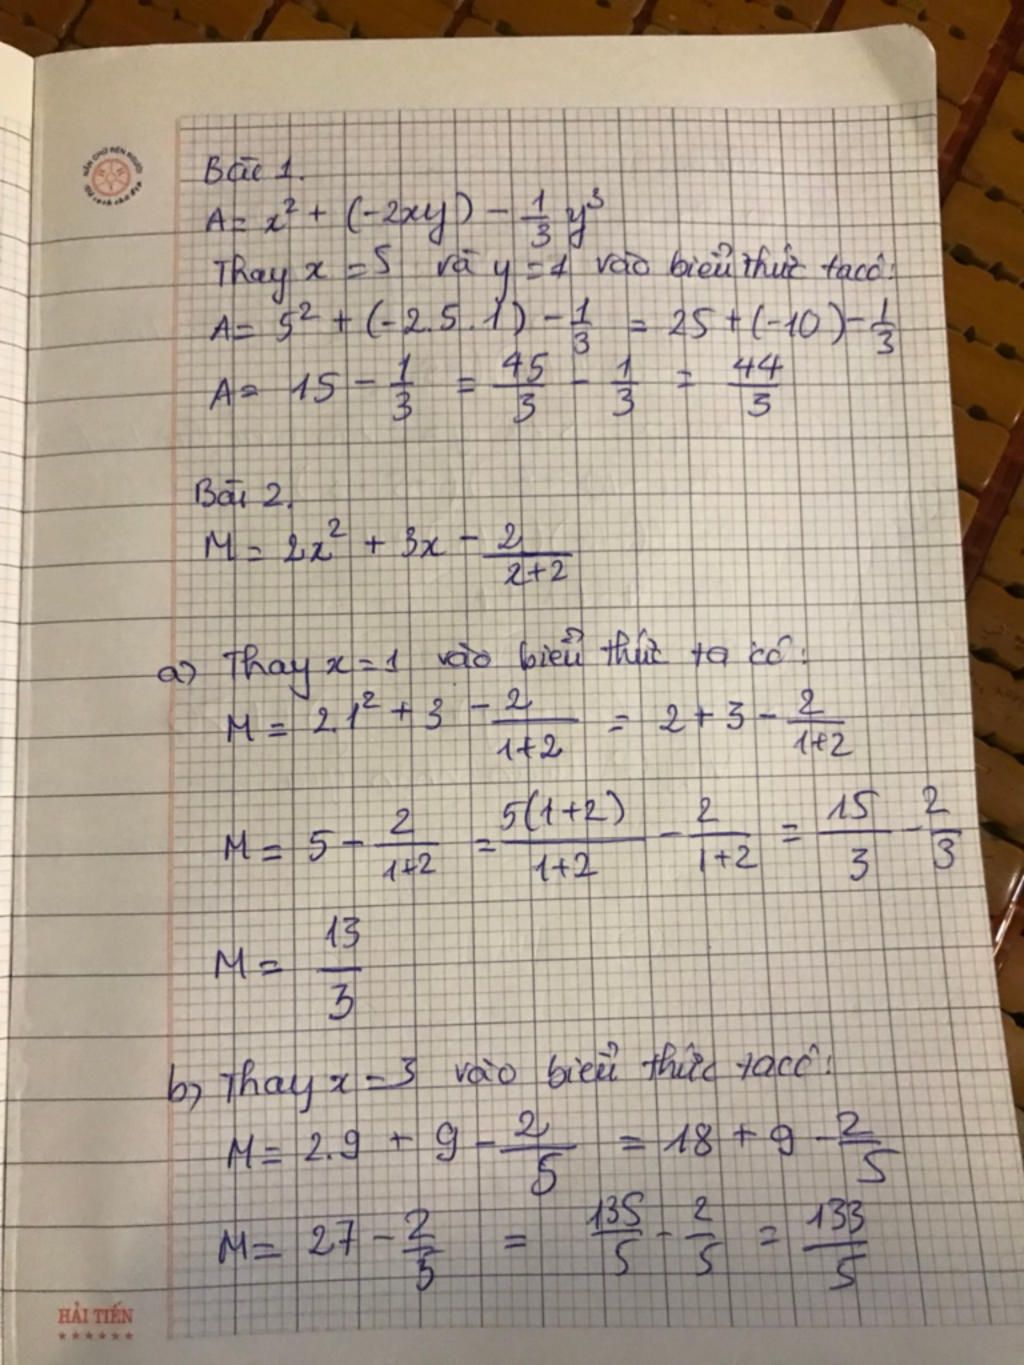 Bài 1.
A = x² + (-2xy) - 1/3 y³
Thay x = 5 và y = 1 vào biểu thức ta có:
A = 5² + (-2.5.1) - 1/3 = 25 + (-10) - 1/3
A = 15 - 1/3 = 45/3 - 1/3 = 44/3
Bài 2.
M = 2x² + 3x - 2/(x+2)
a) Thay x = 1 vào biểu thức ta có:
M = 2.1² + 3 - 2/(1+2) = 2 + 3 - 2/(1+2)
M = 5 - 2/(1+2) = 5(1+2)/(1+2) - 2/(1+2) = 15/3 - 2/3
M = 13/3
b) Thay x = 3 vào biểu thức ta có:
M = 2.9 + 9 - 2/5 = 18 + 9 - 2/5
M = 27 - 2/5 = 135/5 - 2/5 = 133/5
HẢI TIẾN